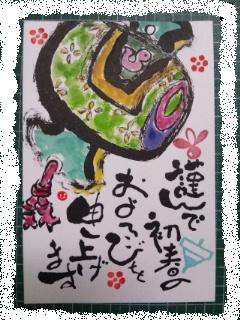 謹んで
初春の
およろこびを
申し上げ
ます